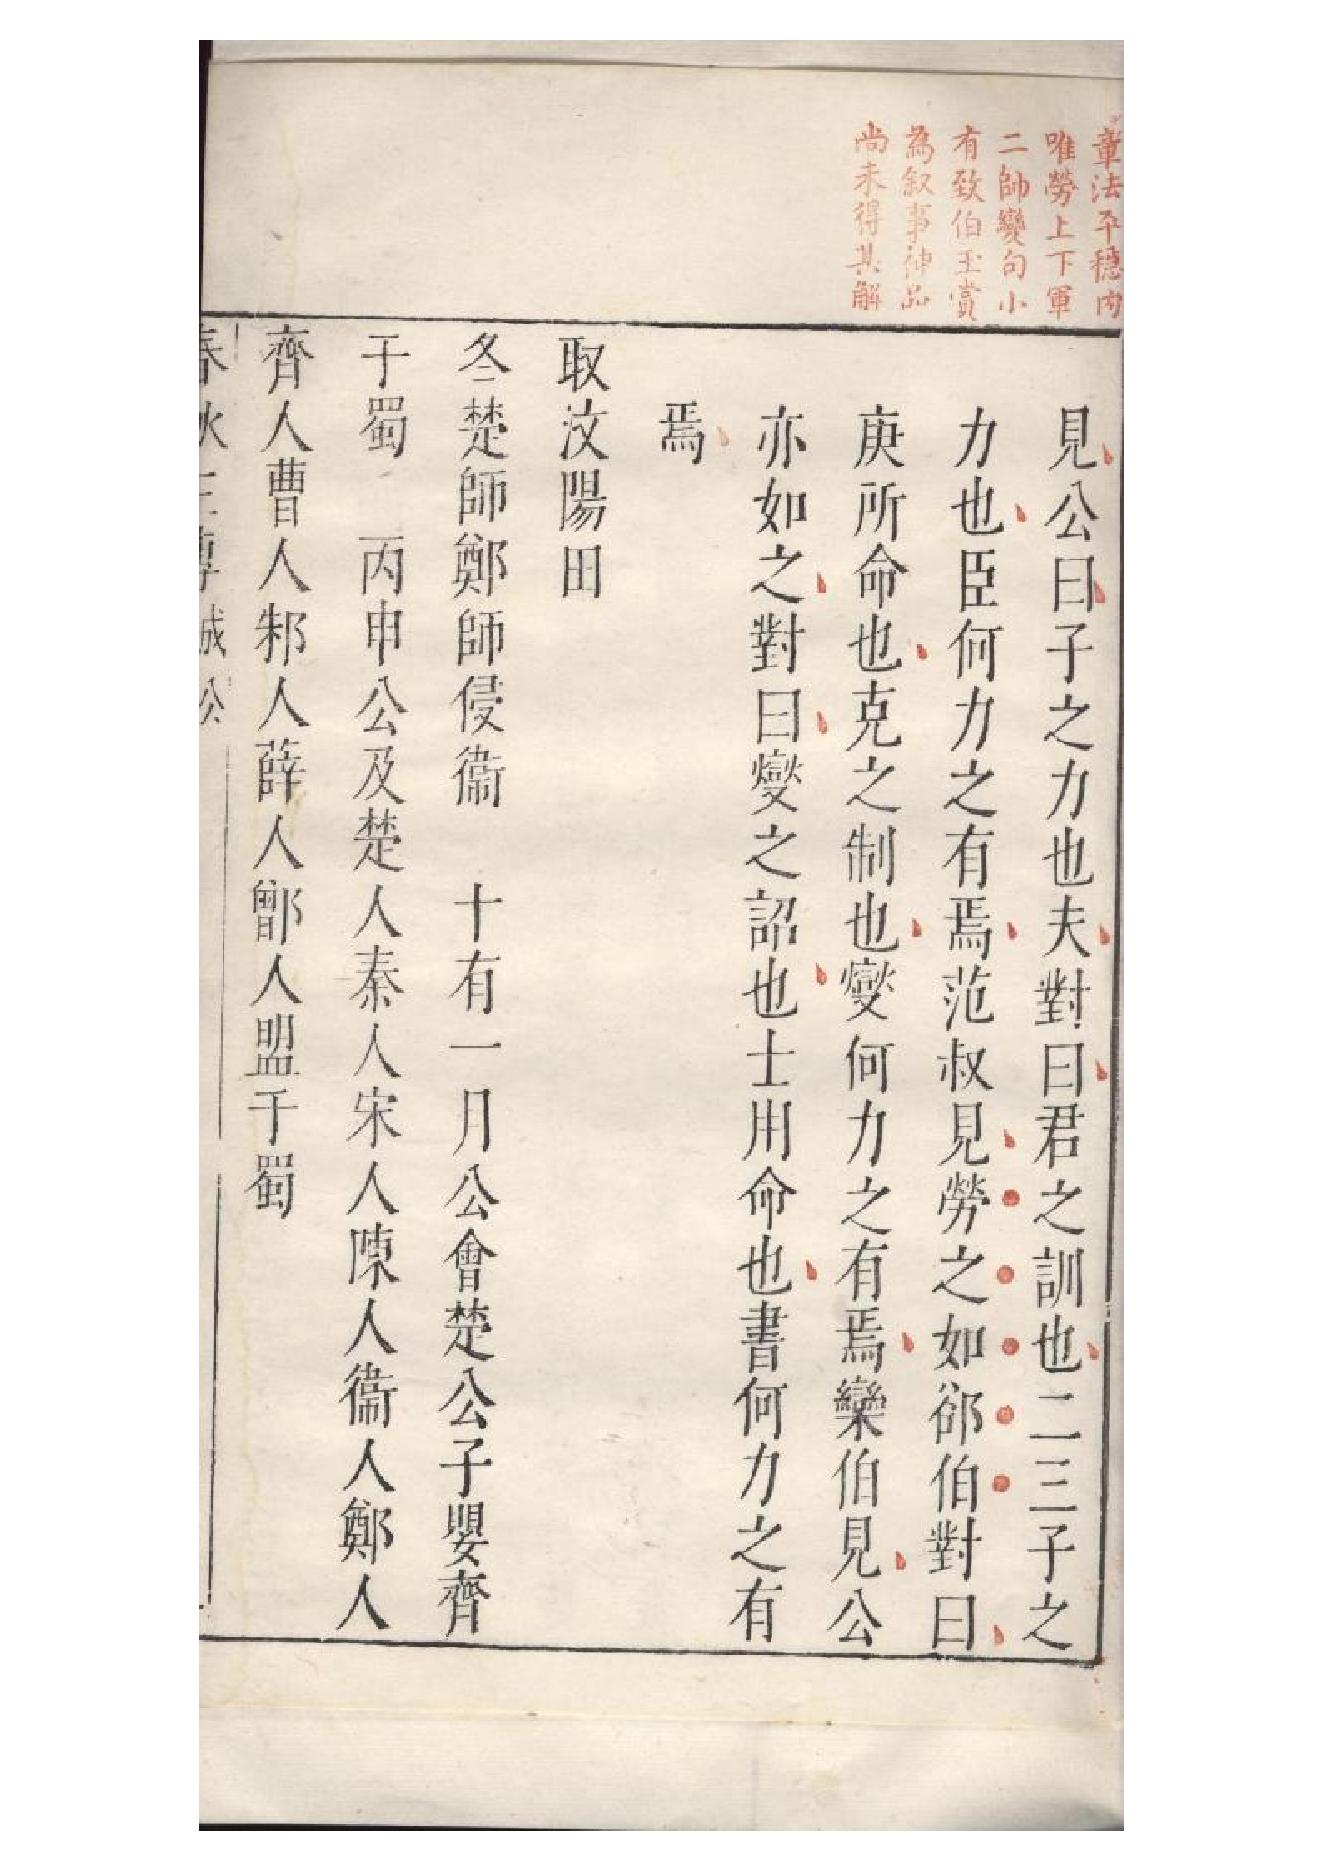 章法平穩內
唯勞上下軍
二帥變句小
有致伯玉賞
為叙事神品
尚未得其解
見公曰子之力也夫對曰君之訓也二三子之
力也臣何力之有焉范叔見勞之如郤伯對曰
庚所命也克之制也燮何力之有焉欒伯見公
亦如之對曰燮之詔也士用命也書何力之有
焉
取汶陽田
冬楚師鄭師侵衞　十有一月公會楚公子嬰齊
于蜀　丙申公及楚人秦人宋人陳人衞人鄭人
齊人曹人邾人薛人鄫人盟于蜀
春秋左傳　成公